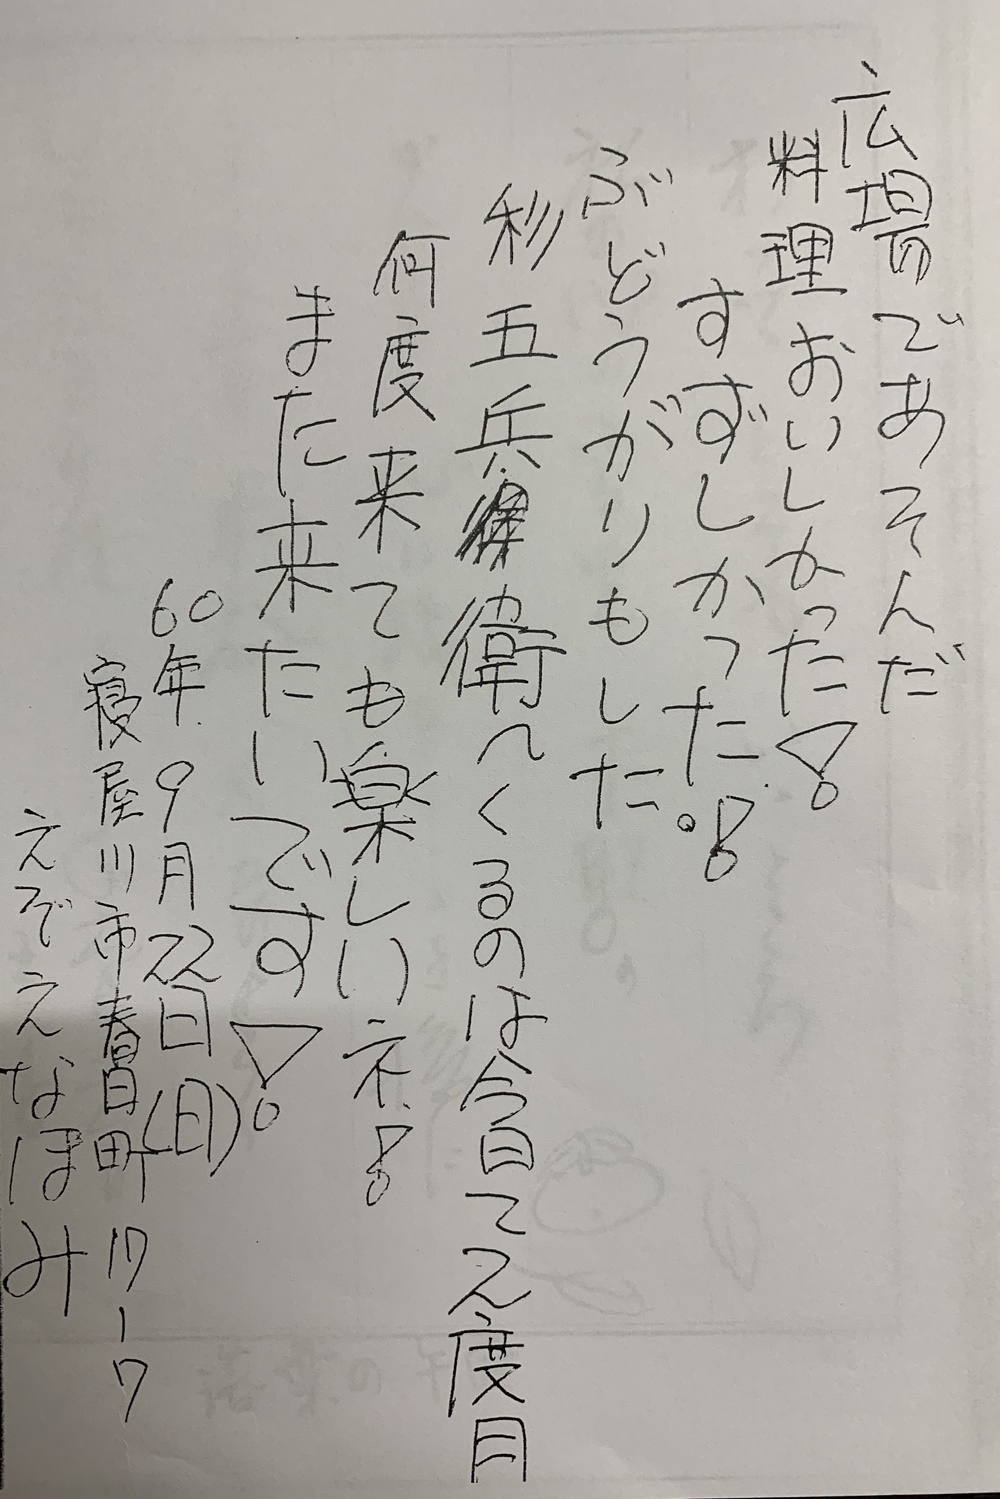 広場であそんだ
料理おいしかった!
すずしかった。!
ぶどうがりもした
杉五兵衛へくるのは今日で2度目
何度来ても楽しいネ!
また来たいです!
60年9月22日(日)
寝屋川市春日町17-7
えぞえなほみ